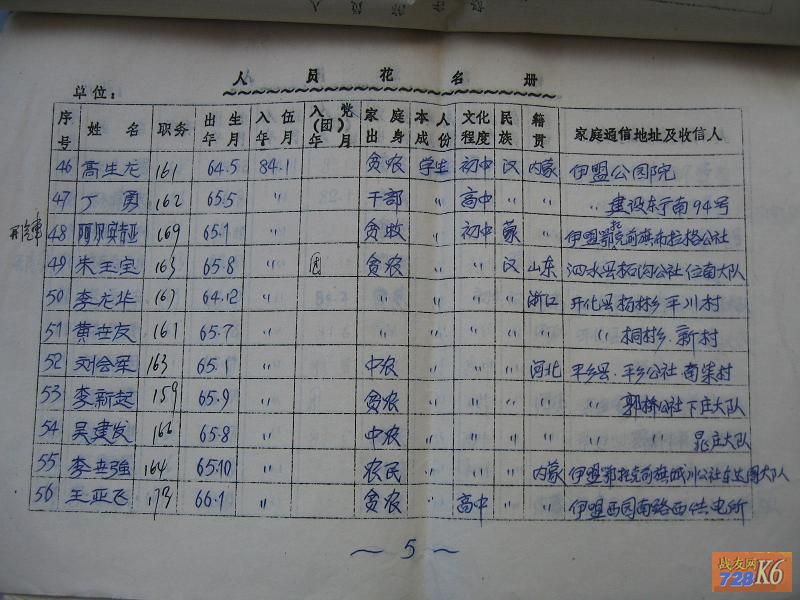 人员花名册
单位：
序号 姓名 职务 出生年月 入伍年月 入党(团)年月 家庭出身 本人成份 文化程度 民族 籍贯 家庭通信地址及收信人
46 高生龙 161 64.5 84.1 贫农 学生 初中 汉 内蒙 伊盟公园院
47 丁勇 162 65.5 〃 干部 〃 高中 〃 〃 〃 建设东厅南94号
48 169 65.1 〃 贫牧 〃 初中 蒙 〃 伊盟鄂托克前旗布拉格公社
49 朱玉宝 163 65.8 〃 团 贫农 〃 〃 汉 山东 泗水县柘沟公社位南大队
50 李龙华 167 64.12 〃 〃 〃 〃 〃 浙江 开化县杨林乡平川村
51 黄世友 161 65.7 〃 〃 〃 〃 〃 〃 〃 桐村乡新村
52 刘会军 163 65.1 〃 中农 〃 〃 〃 河北 平乡县平乡公社南柴村
53 李新起 159 65.9 〃 贫农 〃 〃 〃 〃 〃 郭桥公社下庄大队
54 吴建发 166 65.8 〃 中农 〃 〃 〃 〃 〃 〃 庄大队
55 李世强 164 65.10 〃 农民 〃 〃 〃 内蒙 伊盟鄂托克前旗城川公社大队
56 王亚飞 173 66.1 〃 贫农 〃 高中 〃 〃 伊盟西园南路西供电所
～5～
战友网
728K6